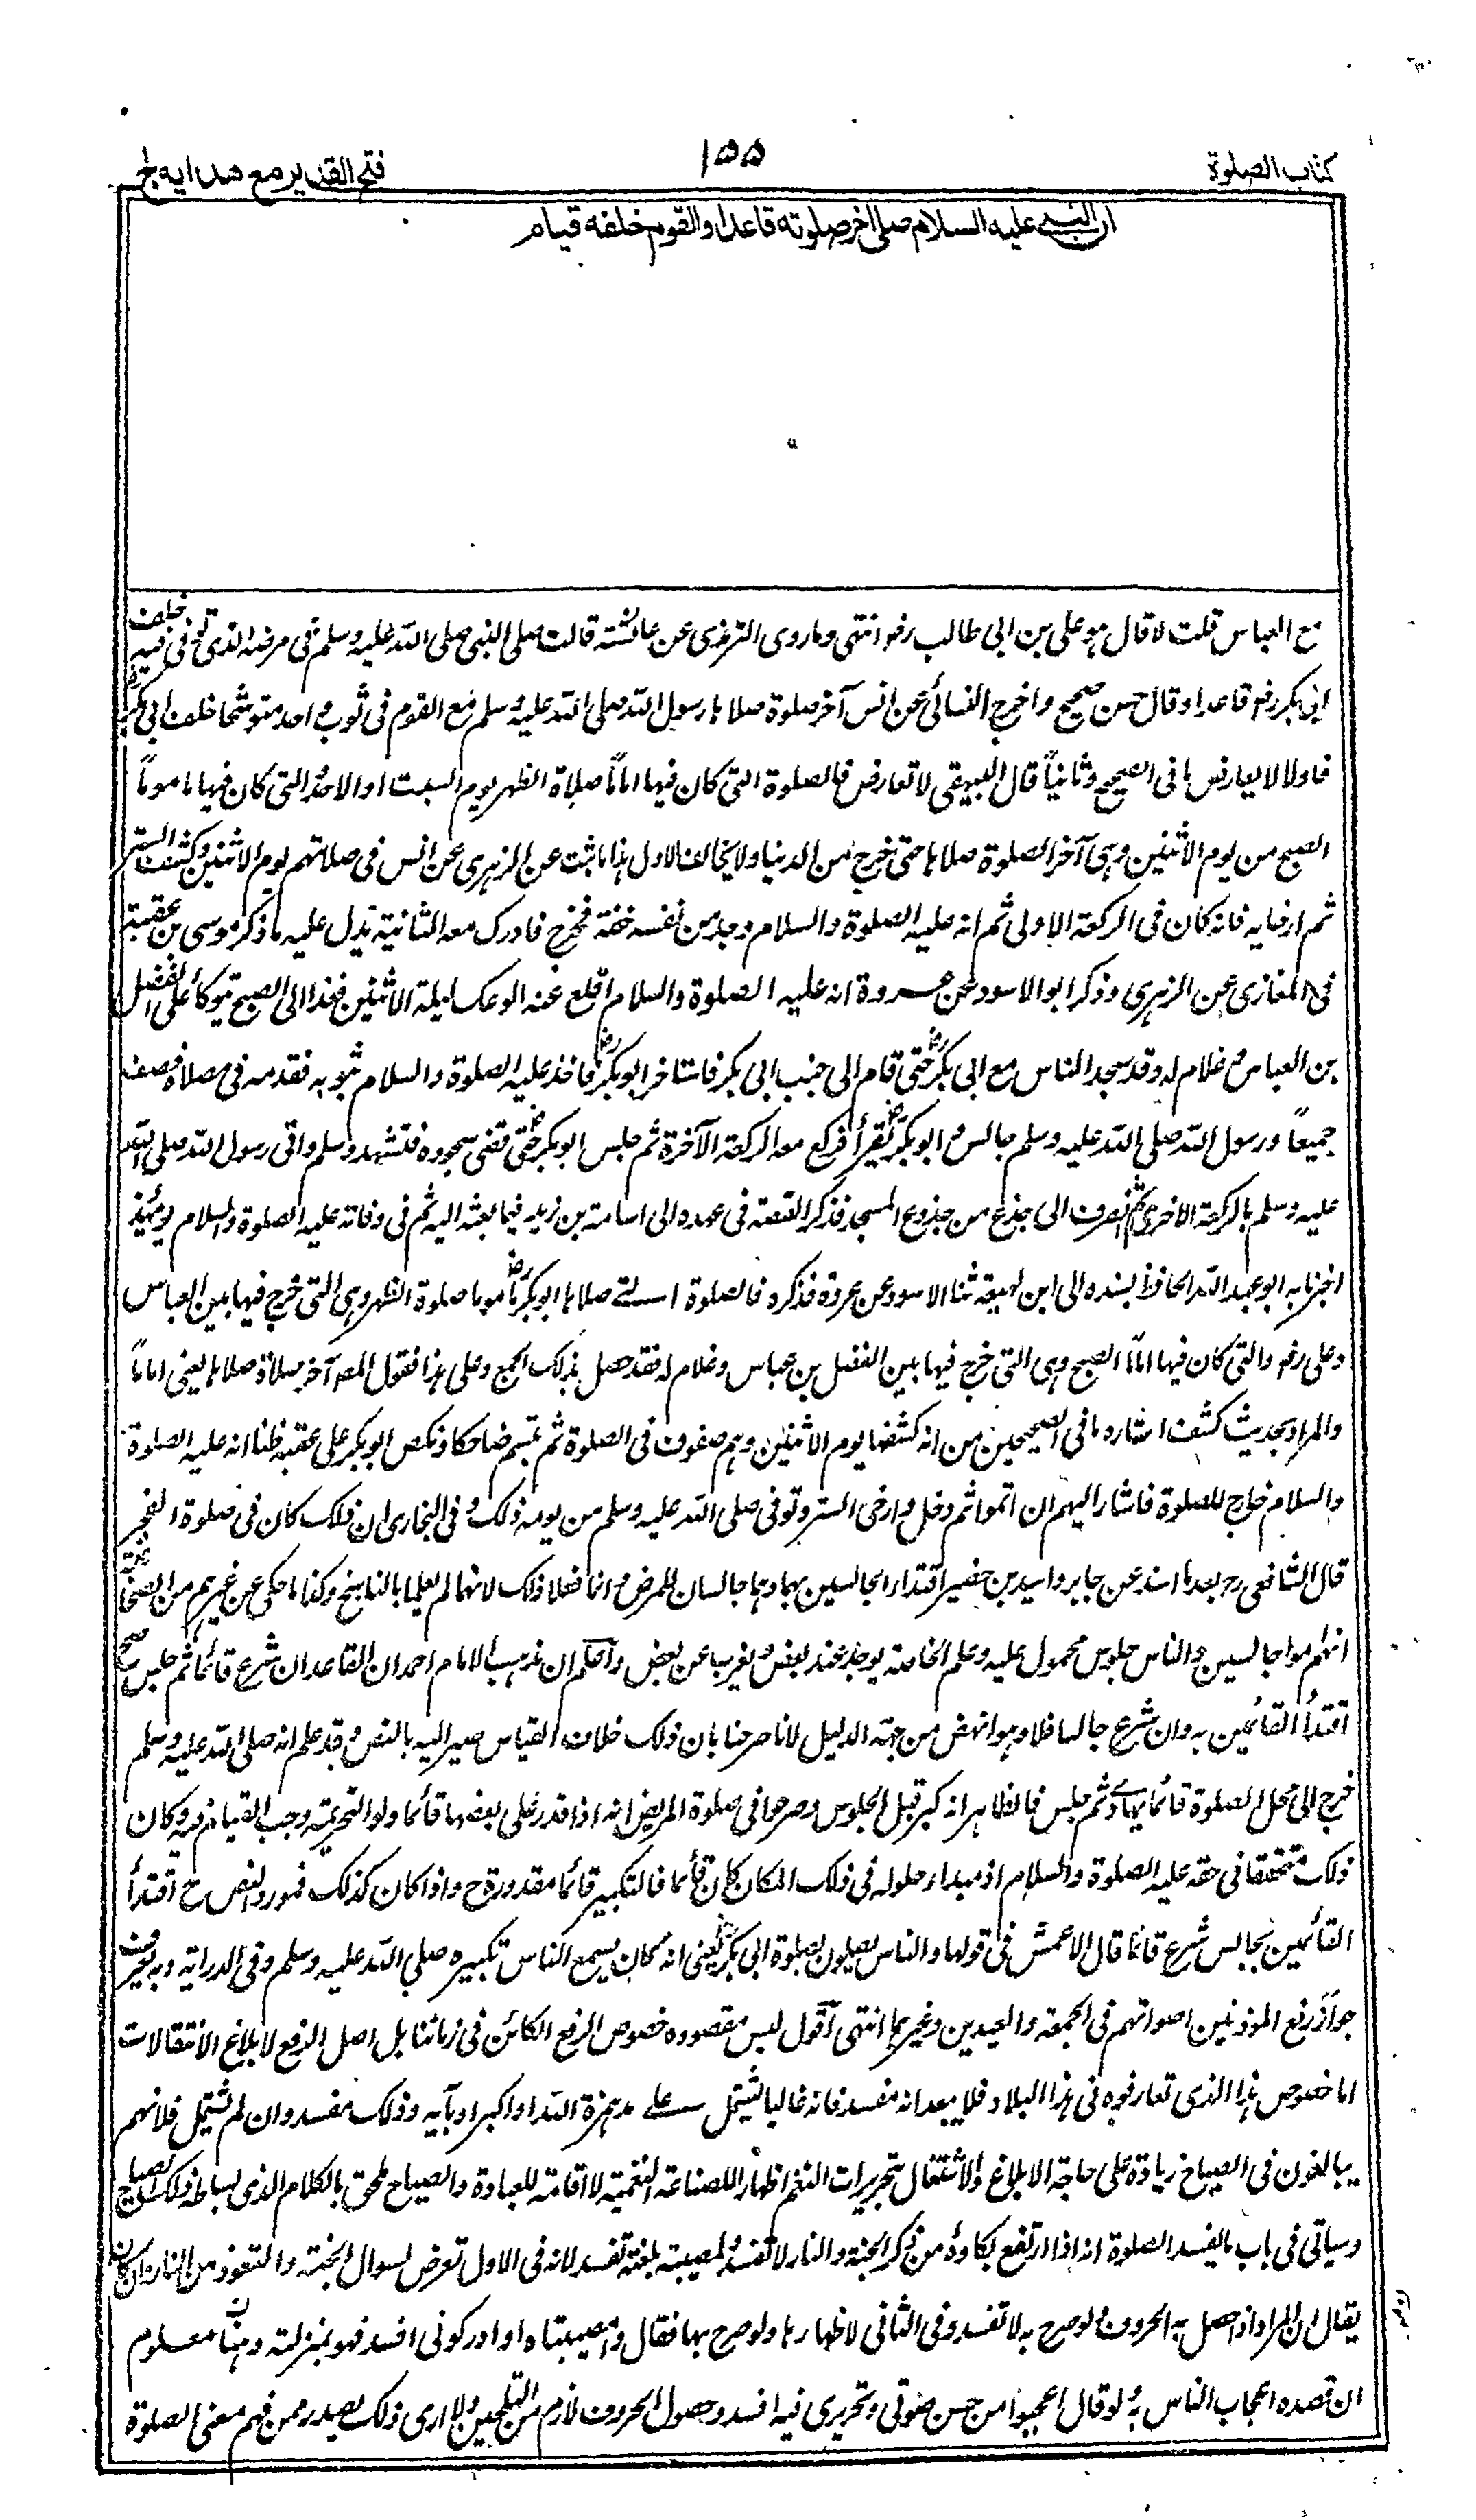 كتاب الصلوة
١٥٥
فتح القدير مع هدايه ج
ان النبي عليه السلام صلى اخر صلوته قاعدا والقوم خلفه قيام
مع العباس قلت لا قال هو على بن ابى طالب رضو انتهى وما روى الترمذى عن عائشة قالت صلى النبى صلى الله عليه وسلم فى مرضه الذى توفى فيه خلف
ابى بكر رضو قاعدا وقال حسن صحيح واخرج النسائى عن انس آخر صلوة صلاها رسول الله صلى الله عليه وسلم مع القوم فى ثوب واحد متوشحا خلف ابى بكر رض
فاولا لا يعارض ما فى الصحيح وثانياً قال البيهقى لا تعارض فالصلوة التى كان فيها اماماً صلاة الظهر يوم السبت او الاحد والتى كان فيها ماموماً
الصبح من يوم الاثنين وهى آخر الصلوة صلاها حتى خرج من الدنيا ولا يخالف الاول هذا ما ثبت عن الزهرى عن انس فى صلاتهم يوم الاثنين وكشف الستر
ثم ارخايه فانه كان فى الركعة الاولى ثم انه عليه الصلوة والسلام وجد من نفسه خفة فخرج فادرك معه الثانية يدل عليه ما ذكر موسى بن عقبة
فى المغازى عن الزهرى وذكر ابو الاسود عن عروة انه عليه الصلوة والسلام اقلع عنه الوعك ليلة الاثنين فغدا الى الصبح يتوكأ على الفضل
بن العباس و غلام له وقد سجد الناس مع ابى بكر رض حتى قام الى جنب ابى بكر فاستاخر ابو بكر رض فاخذ عليه الصلوة والسلام بثوبه فقدمه فى مصلاه فصف
جميعاً ورسول الله صلى الله عليه وسلم جالس و ابو بكر رض يقرأ فركع معه الركعة الآخرة ثم جلس ابو بكر رض حتى قضى سجوده فتشهد وسلم واتى رسول الله صلى الله
عليه وسلم بالركعة الاخرى ثم انصرف الى جذع من جذوع المسجد فذكر القصة فى عهده الى اسامة بن زيد فيما بعثه اليه ثم فى وفاته عليه الصلوة والسلام يومئذ
اخبرنا به ابو عبد الله الحافظ بسنده الى ابن لهيعة ثنا الاسود عن عروة فذكره فالصلوة التى صلاها ابو بكر رض ماموما صلوة الظهر وهى التى خرج فيها بين العباس
وعلى رضو والتى كان فيها اماماً الصبح وهى التى خرج فيها بين الفضل بن عباس وغلام له فقد حصل بذلك الجمع وعلى هذا فقول المص آخر صلاة صلاها يعنى اماماً
والمراد بحديث كشف استاره ما فى الصحيحين من انه كشفها يوم الاثنين وهم صفوف فى الصلوة ثم تبسم ضاحكا ونكص ابو بكر على عقبه ظنا انه عليه الصلوة
والسلام خارج للصلوة فاشار اليهم ان اتموا ثم دخل وارخى الستر وتوفى صلى الله عليه وسلم من يومه ذلك وفى البخارى ان ذلك كان فى صلوة الفجر
قال الشافعى رح بعد ما اسند عن جابر واسيد بن حضير اقتداء الجالسين بهما وهما جالسان للمرض و انما فعلا ذلك لانهما لم يعلما بالناسخ وكذا ما حكى عن غيرهم من الصحابة
انهم اموا جالسين والناس جلوس محمول عليه وعلم الخاصة يوجد عند بعض ويغرب عن بعض واعلم ان مذهب الامام احمد ان القاعد ان شرع قائما ثم جلس صح
اقتدأ القائمين به وان شرع جالسا فلا وهو انهض من جهة الدليل لانا صرحنا بان ذلك خلاف القياس صير اليه بالنص وقد علم انه صلى الله عليه وسلم
خرج الى محل الصلوة قائما يهادى ثم جلس فالظاهر انه كبر قبل الجلوس وصرحوا فى صلوة المريض انه اذا قدر على بعضها قائما ولو التحريمة وجب القيام فيه وكان
ذلك متحققا فى حقه عليه الصلوة والسلام اذ مبدأ حلوله فى ذلك المكان كان قائما فالتكبير قائما مقدورة ح واذا كان كذلك فمورد النص ح اقتدأ
القائمين بجالس شرع قائما قال الاعمش فى قولها والناس يصلون بصلوة ابى بكر رض يعنى انه كان يسمع الناس تكبيره صلى الله عليه وسلم وفى الدراية وبه يعرف
جواز رفع المؤذنين اصواتهم فى الجمعة والعيدين وغيرهما انتهى اقول ليس مقصوده خصوص الرفع الكائن فى زماننا بل اصل الرفع لابلاغ الانتقالات
اما خصوص هذا الذى تعارفوه فى هذا البلاد فلا يبعد انه مفسد فانه غالبا يشتمل على مد همزة الله او اكبر او بآيه وذلك مفسد وان لم يشتمل فلانهم
يبالغون فى الصياح زيادة على حاجة الابلاغ والاشتغال بتحريرات النغم اظهارا للصناعة النغمية لا اقامة للعبادة والصياح ملحق بالكلام الذى بساطه ذلك الصياح
وسياتى فى باب ما يفسد الصلوة انه اذا ارتفع بكاؤه من ذكر الجنة والنار لا تفسد ولمصيبة بلغته تفسد لانه فى الاول تعرض لسوال الجنة والتعوذ من النار وان كان
يقال ان المراد اذا حصل به الحروف ولو صرح به لا تفسد وفى الثانى لاظهارها ولو صرح بها فقال وامصيبتاه او ادركونى افسد فهو بمنزلته وههنا معلوم
ان قصده اعجاب الناس به ولو قال اعجبوا من حسن صوتى وتحريرى فيه افسد وحصول الحروف لازم من التلحين ولا ارى ذلك يصدر ممن فهم معنى الصلوة